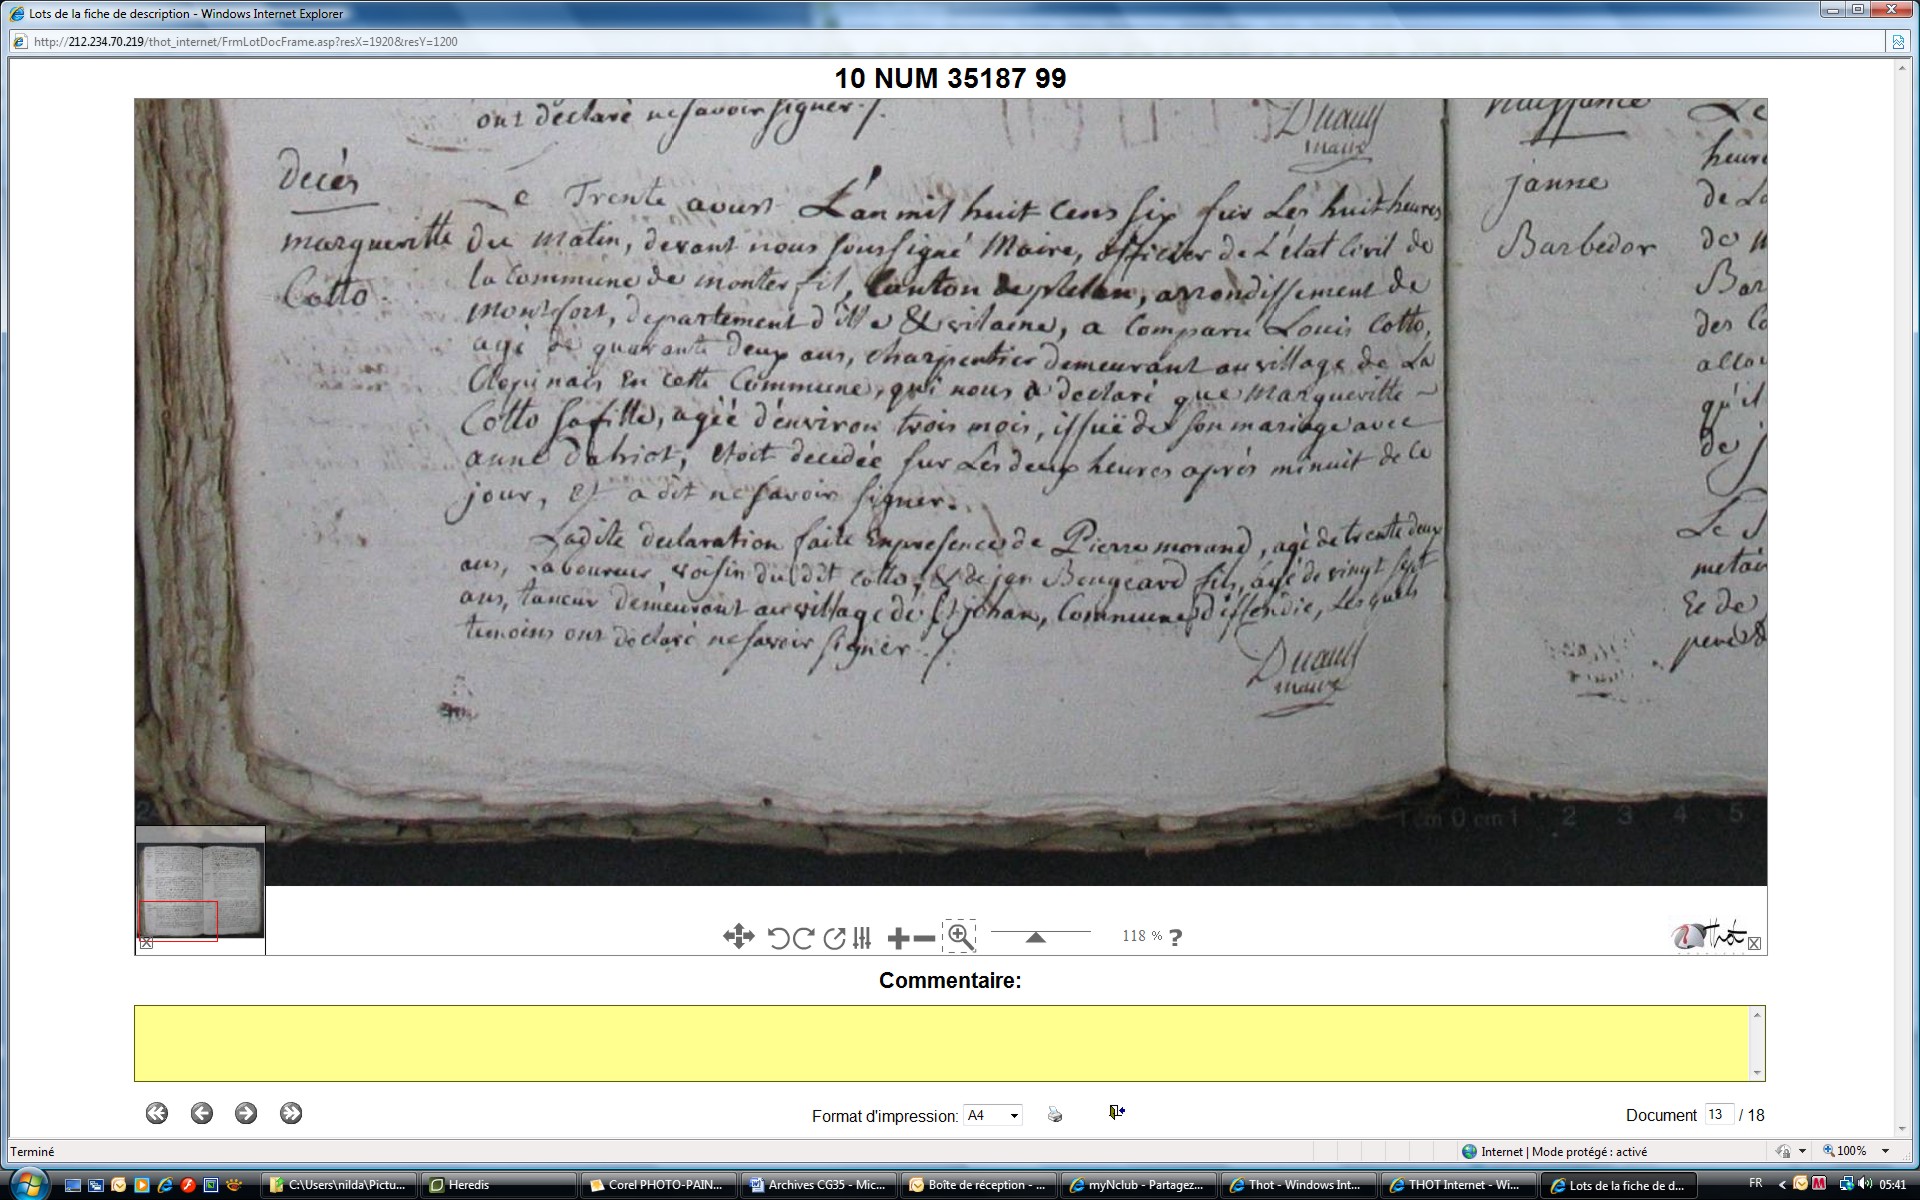 Lots de la fiche de description - Windows Internet Explorer
http://212.234.70.219/thot_internet/FrmLotDocFrame.asp?resX=1920&resY=1200
10 NUM 35187 99
ont déclaré ne savoir signer ./.
Duault
maire
Décès
margueritte
Cotto.
Le Trente aoust L'an mil huit cens six sur Les huit heures
du matin, devant nous soussigné Maire, officier de L'état Civil de
la Commune de monterfil, Canton de plelan, arrondissement de
montfort, departement d'ille & vilaine, a Comparu Louis Cotto,
agé de quarante deux ans, charpentier demeurant au village de La
En cette Commune, qui nous a declaré que Margueritte
Cotto sa fille, agée d'environ trois mois, issuë de son mariage avec
anne dahiot, étoit decedée sur Les deux heures après minuit de ce
jour, Et a dit ne savoir signer.
Ladite declaration faite En presence de Pierre morand, agé de trente deux
ans, Laboureur, voisin du dit Cotto, & de jan Bougeard fils, agé de vingt sept
ans, taneur demeurant au village de St jehan, Commune d'iffendic, Lesquels
temoins ont declaré ne savoir signer ./.
Duault
maire
naissance
janne
Barbedor
Le
heure
de La
de m
Bar
des Co
allou
qu'il
de j
Le S
metai
Et de
118 % ?
Thot
1 cm 0 cm 1 2 3 4 5
Commentaire:
Format d'impression: A4
Document 13 / 18
Terminé
Internet | Mode protégé : activé
100%
C:\Users\nilda\Pictu...
Heredis
Corel PHOTO-PAIN...
Archives CG35 - Mic...
Boîte de réception - ...
myNclub - Partagez...
Thot - Windows Int...
THOT Internet - Wi...
Lots de la fiche de d...
FR
05:41